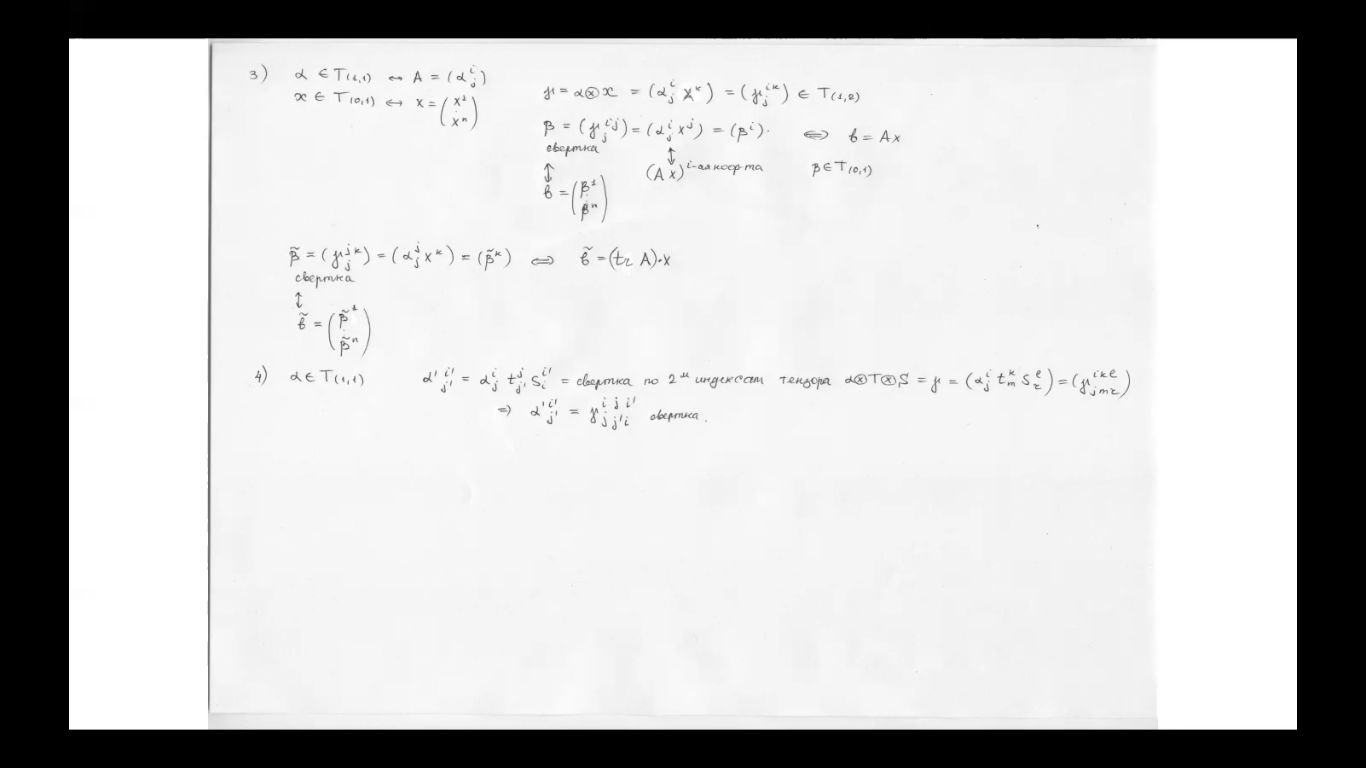 3) α ∈ T(1,1) ↔ A = (α^i_j)
x ∈ T(0,1) ↔ x = (x^1 ⋮ x^n)
γ = α⊗x = (α^i_j x^k) = (γ^{ik}_j) ∈ T(1,2)
β = (γ^{ij}_j) = (α^i_j x^j) = (β^i). ⇔ b = Ax
свертка
↕ ↕
(Ax)^{i-ая коор-та} β ∈ T(0,1)
b = (β^1 ⋮ β^n)
β̃ = (γ^{jk}_j) = (α^j_j x^k) = (β̃^k) ⇔ b̃ = (tr A)·x
свертка
↕
b̃ = (β̃^1 ⋮ β̃^n)
4) α ∈ T(1,1) α'^{i'}_{j'} = α^i_j t^j_{j'} s^{i'}_i = свертка по 2м индексам тензора α⊗T⊗S = γ = (α^i_j t^k_m s^l_r) = (γ^{ikl}_{jmr})
⇒ α'^{i'}_{j'} = γ^{i j i'}_{j j' i} свертка.